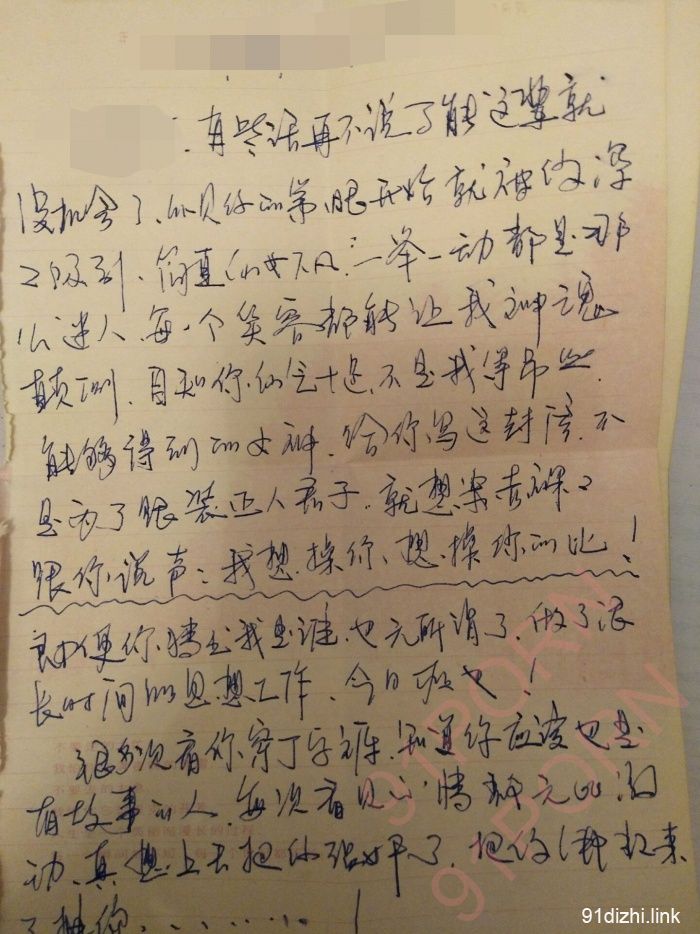 有些话再不说可能这辈就
没机会了、从见你的第一眼开始就被你深
深吸引、简直仙女下凡、一举一动都是那
么迷人、每一个笑容都能让我神魂
颠倒、自知你仙气十足、不是我等吊丝
能够得到的女神、给你写这封信、不
是为了跟装正人君子、就想实实
跟你说声：我想操你、想操你的比！
即便你猜出我是谁、也无所谓了、做了很
长时间的思想工作、今日
很多次看你穿丁字裤、知道你应该也是
有故事的人、每次看见心情都无比激
动、真想上去把你强奸了、把你
91PORN
91PORN
91dizhi.link